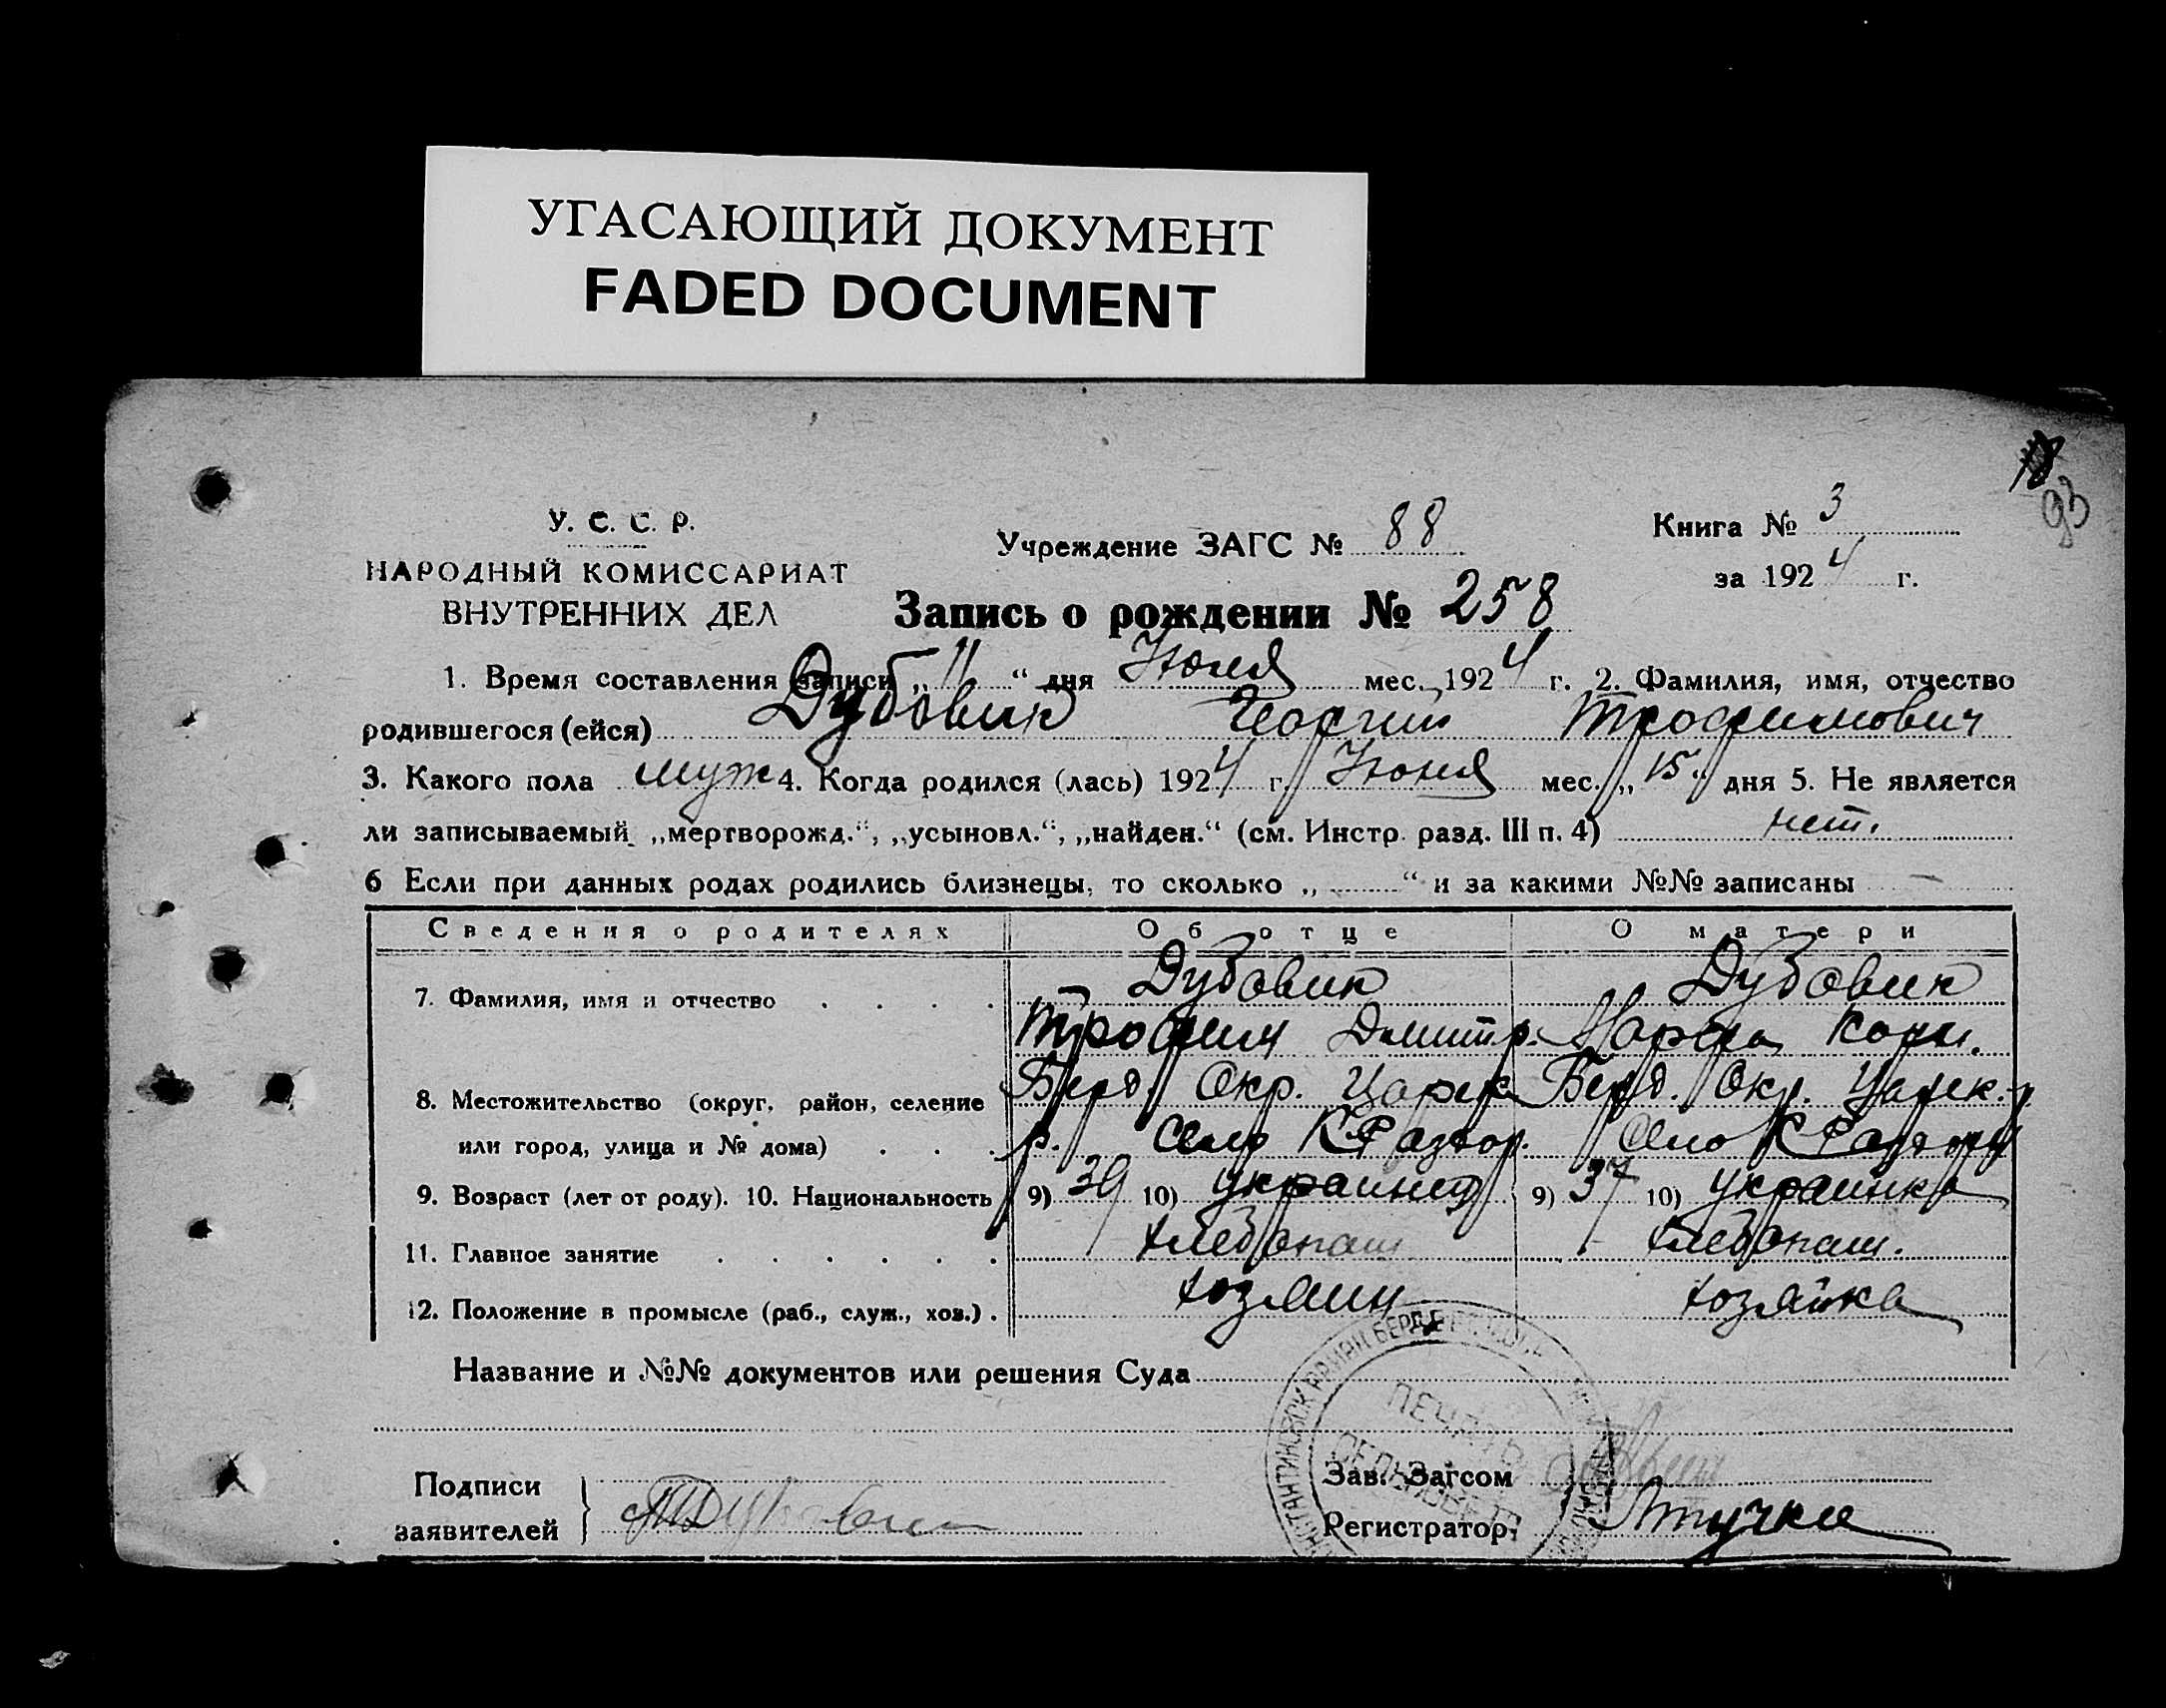 УГАСАЮЩИЙ ДОКУМЕНТ
FADED DOCUMENT
93
У. С. С. Р.
НАРОДНЫЙ КОМИССАРИАТ
ВНУТРЕННИХ ДЕЛ
Учреждение ЗАГС № 88
Книга № 3
за 1924 г.
Запись о рождении № 258
1. Время составления записи „11“ дня мес. 1924 г. 2. Фамилия, имя, отчество
родившегося (ейся) Дубовик Георгий Трофимович
3. Какого пола муж 4. Когда родился (лась) 1924 г. мес. „15“ дня 5. Не является
ли записываемый „мертворожд.“, „усыновл.“, „найден.“ (см. Инстр. разд. III п. 4) нет.
6 Если при данных родах родились близнецы, то сколько „ “ и за какими №№ записаны —
Сведения о родителях Об отце О матери
7. Фамилия, имя и отчество Дубовик Дубовик
Трофим Дмитр. Марфа Корн.
8. Местожительство (округ, район, селение Берд. Окр. Царек Берд. Окр. Царек.
или город, улица и № дома) р. село К Раздор. село К Раздоры
9. Возраст (лет от роду). 10. Национальность 9) 39 10) украинец 9) 37 10) украинка
11. Главное занятие хлебопаш хлебопаш.
12. Положение в промысле (раб., служ., хоз.) . хозяин хозяйка
Название и №№ документов или решения Суда
ПЕЧАТЬ
СЕЛЬСОВЕТА
Подписи
заявителей
Дубовик
Зав. Загсом
Регистратор